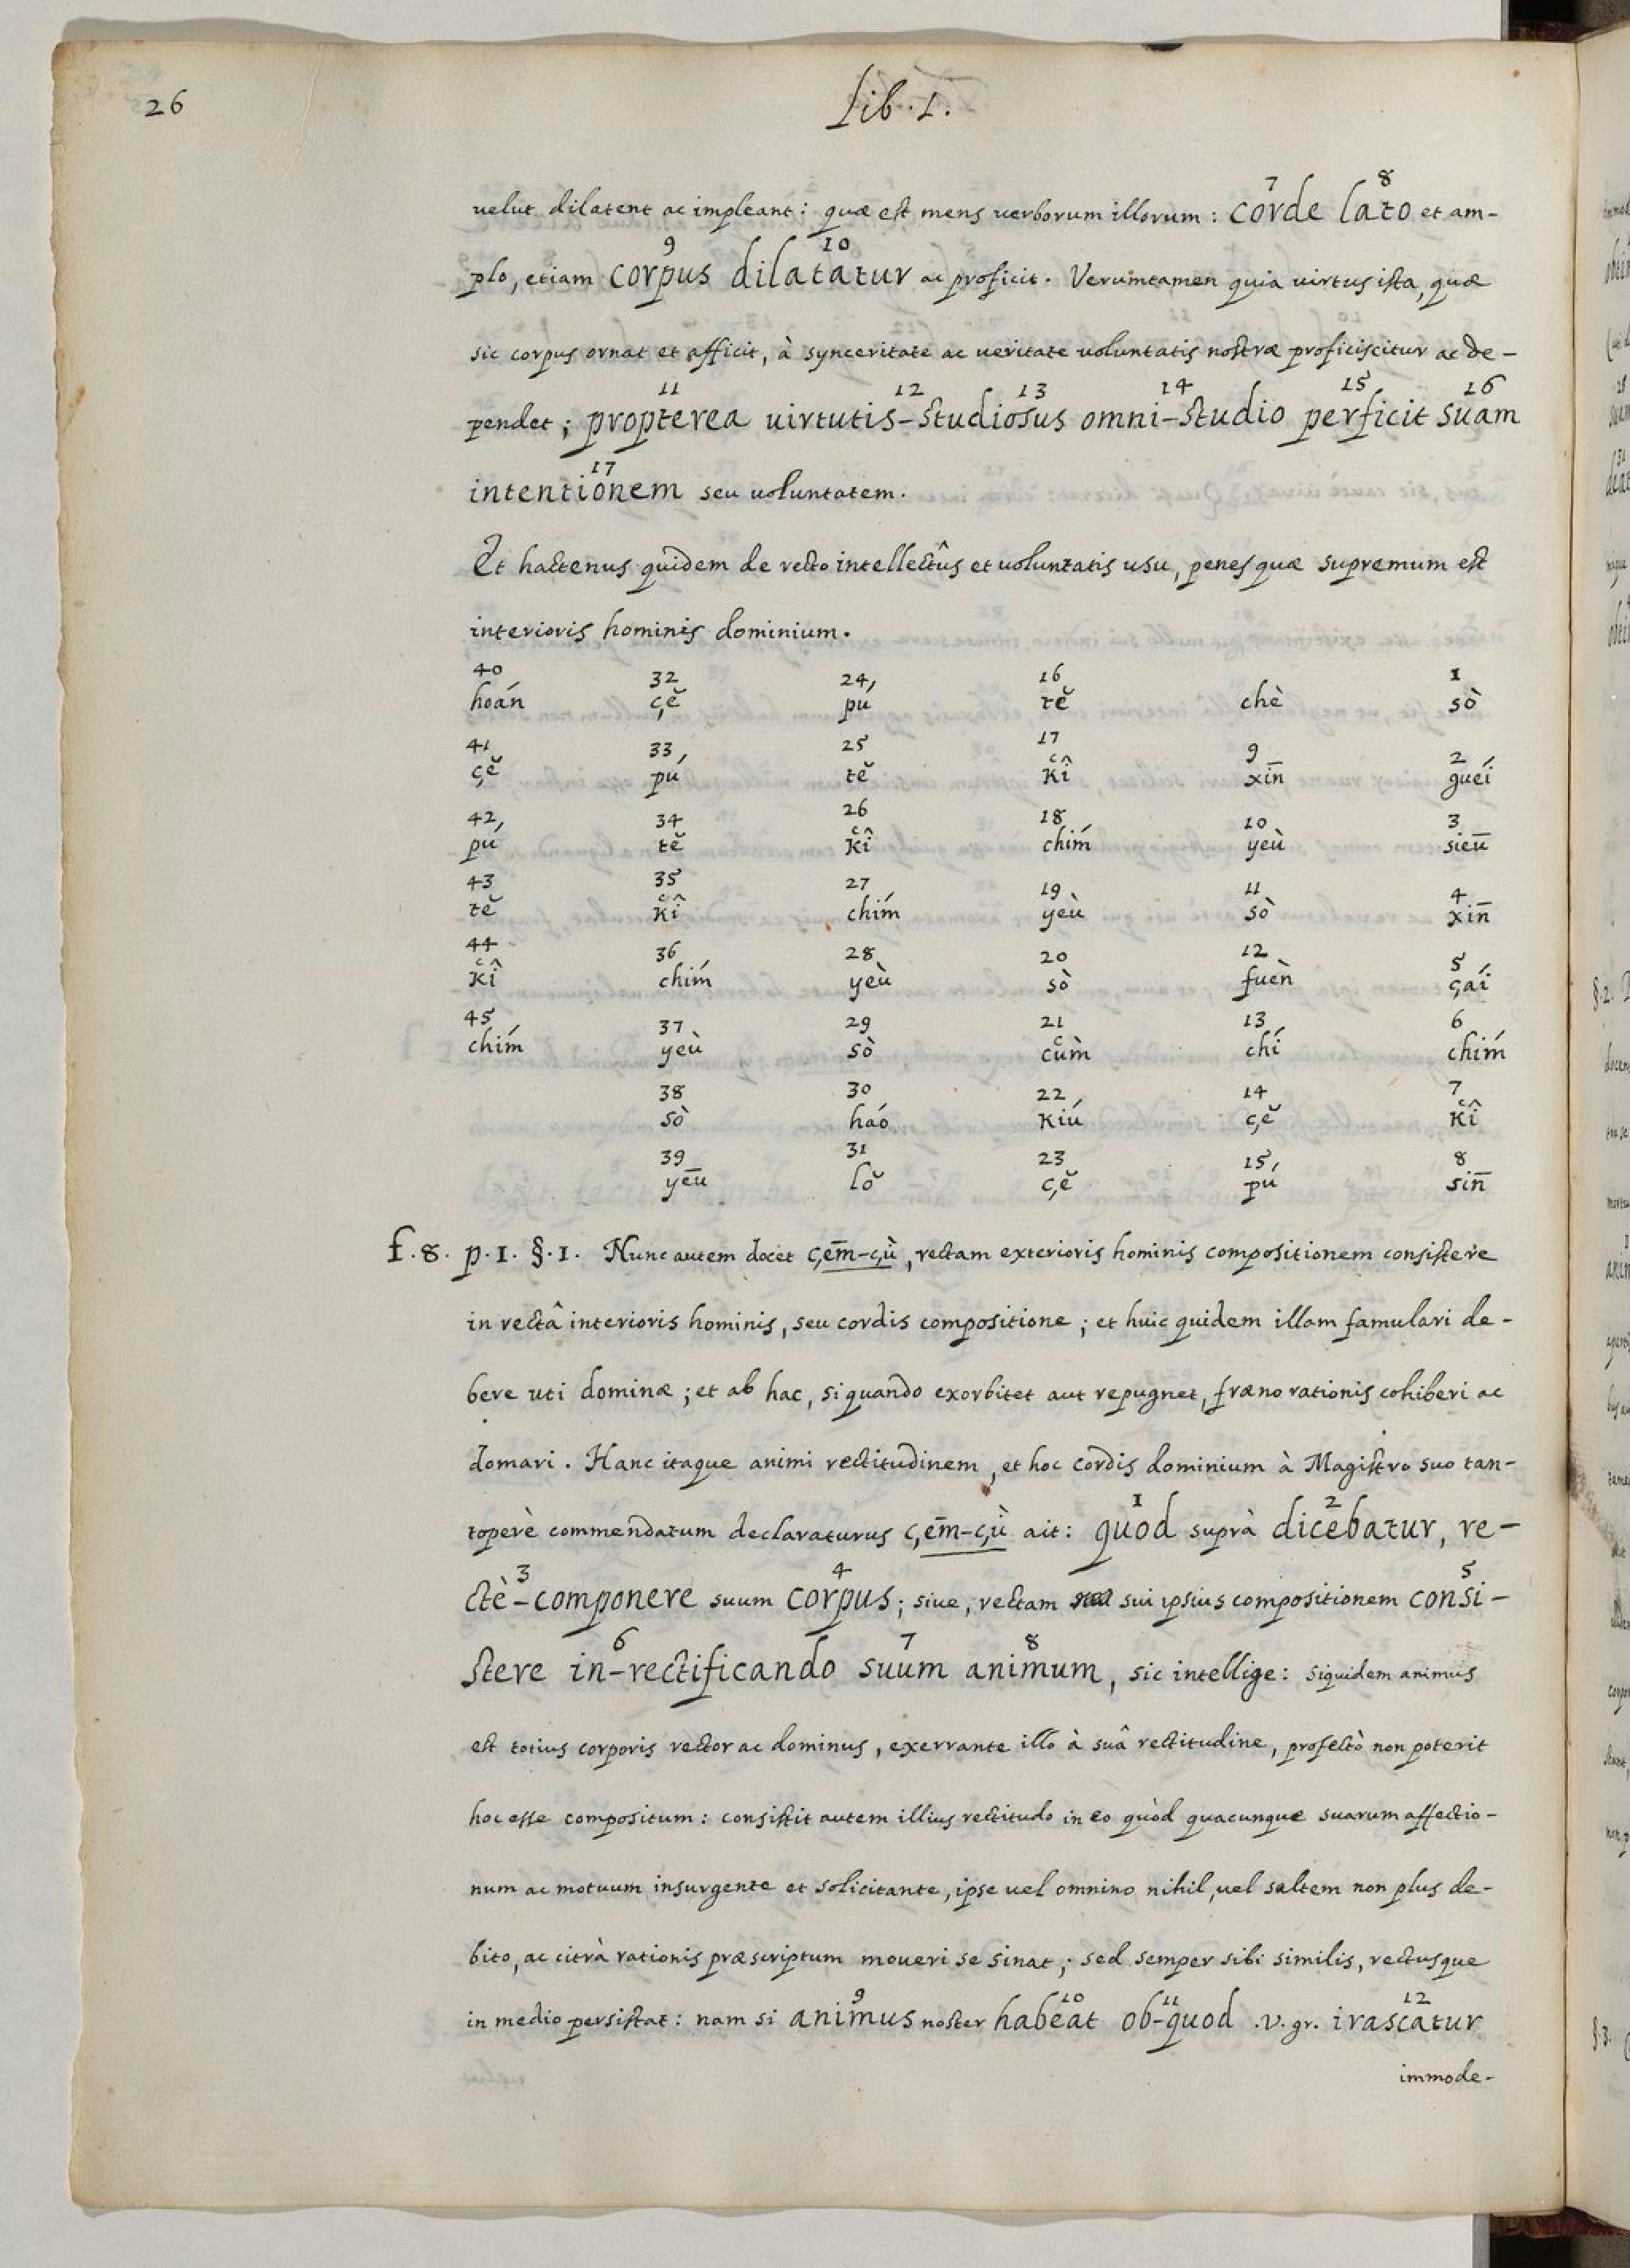 26
Lib. I.
7 8
uelut dilatent ac impleant: quæ est mens uerborum illorum: corde lato et am-
9 10
plo, etiam corpus dilatatur ac proficit. Verumtamen quia uirtus ista, quæ
sic corpus ornat et afficit, à synceritate ac ueritate uoluntatis nostræ proficiscitur ac de-
11 12 13 14 15 16
pendet; propterea uirtutis-studiosus omni-studio perficit suam
17
intentionem seu uoluntatem.
Et hactenus quidem de recto intellectûs et uoluntatis usu, penes quæ supremum est
interioris hominis dominium.
40 32 24 16 1
hoán çĕ pú tĕ chè sò
41 33 25 17 9 2
çĕ pú tĕ kî xīn guéi
42 34 26 18 10 3
pú tĕ kî chím yeù siēu
43 35 27 19 11 4
tĕ kî chím yeù sò xīn
44 36 28 20 12 5
kî chím yeù sò fuèn çái
45 37 29 21 13 6
chím yeù sò cùm chí chím
38 30 22 14 7
sò háo kiú çĕ kî
39 31 23 15 8
yēu lŏ çĕ pú sīn
f. 8. p. 1. §. 1. Nunc autem docet çēm-çù, rectam exterioris hominis compositionem consistere
in rectâ interioris hominis, seu cordis compositione; et huic quidem illam famulari de-
bere uti dominæ; et ab hac, siquando exorbitet aut repugnet, fræno rationis cohiberi ac
domari. Hanc itaque animi rectitudinem, et hoc cordis dominium à Magistro suo tan-
1 2
toperè commendatum declaraturus çēm-çù ait: quod suprà dicebatur, re-
3 4 5
ctè-componere suum corpus; siue, rectam sui ipsius compositionem consi-
6 7 8
stere in-rectificando suum animum, sic intellige: siquidem animus
est totius corporis rector ac dominus, exerrante illo à suâ rectitudine, profectò non poterit
hoc esse compositum: consistit autem illius rectitudo in eo quòd quacunque suarum affectio-
num ac motuum insurgente et solicitante, ipse uel omnino nihil, uel saltem non plus de-
bito, ac citrà rationis præscriptum moueri se sinat; sed semper sibi similis, rectusque
9 10 11 12
in medio persistat: nam si animus noster habeat ob-quod .v. gr. irascatur
immode-